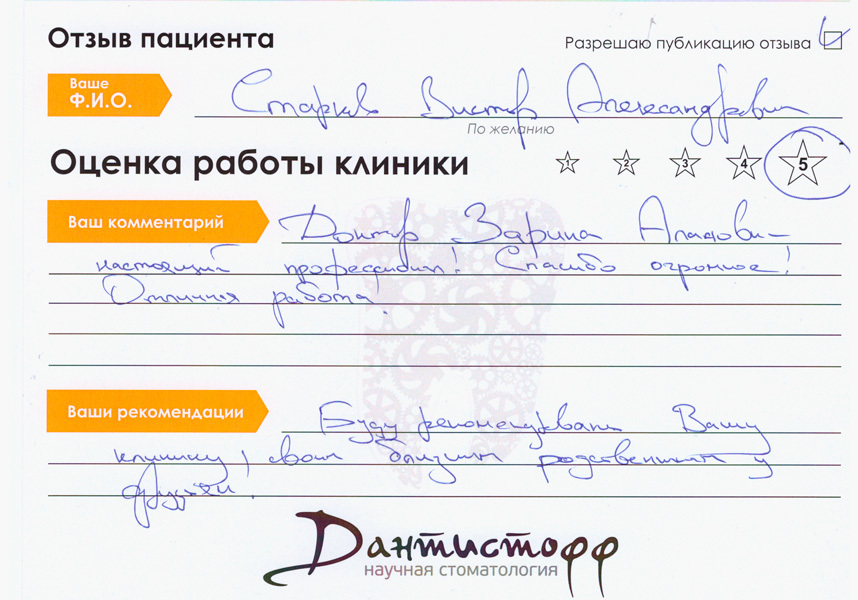 Отзыв пациента
Разрешаю публикацию отзыва
Ваше
Ф.И.О.
Старков Виктор Александрович
По желанию
Оценка работы клиники
1 2 3 4 5
Ваш комментарий
Доктор Зарина
настоящий профессионал! Спасибо огромное!
Отличная работа!
Ваши рекомендации
Буду рекомендовать Вашу
клинику своим близким родственникам и
друзьям!
Дантистофф
научная стоматология